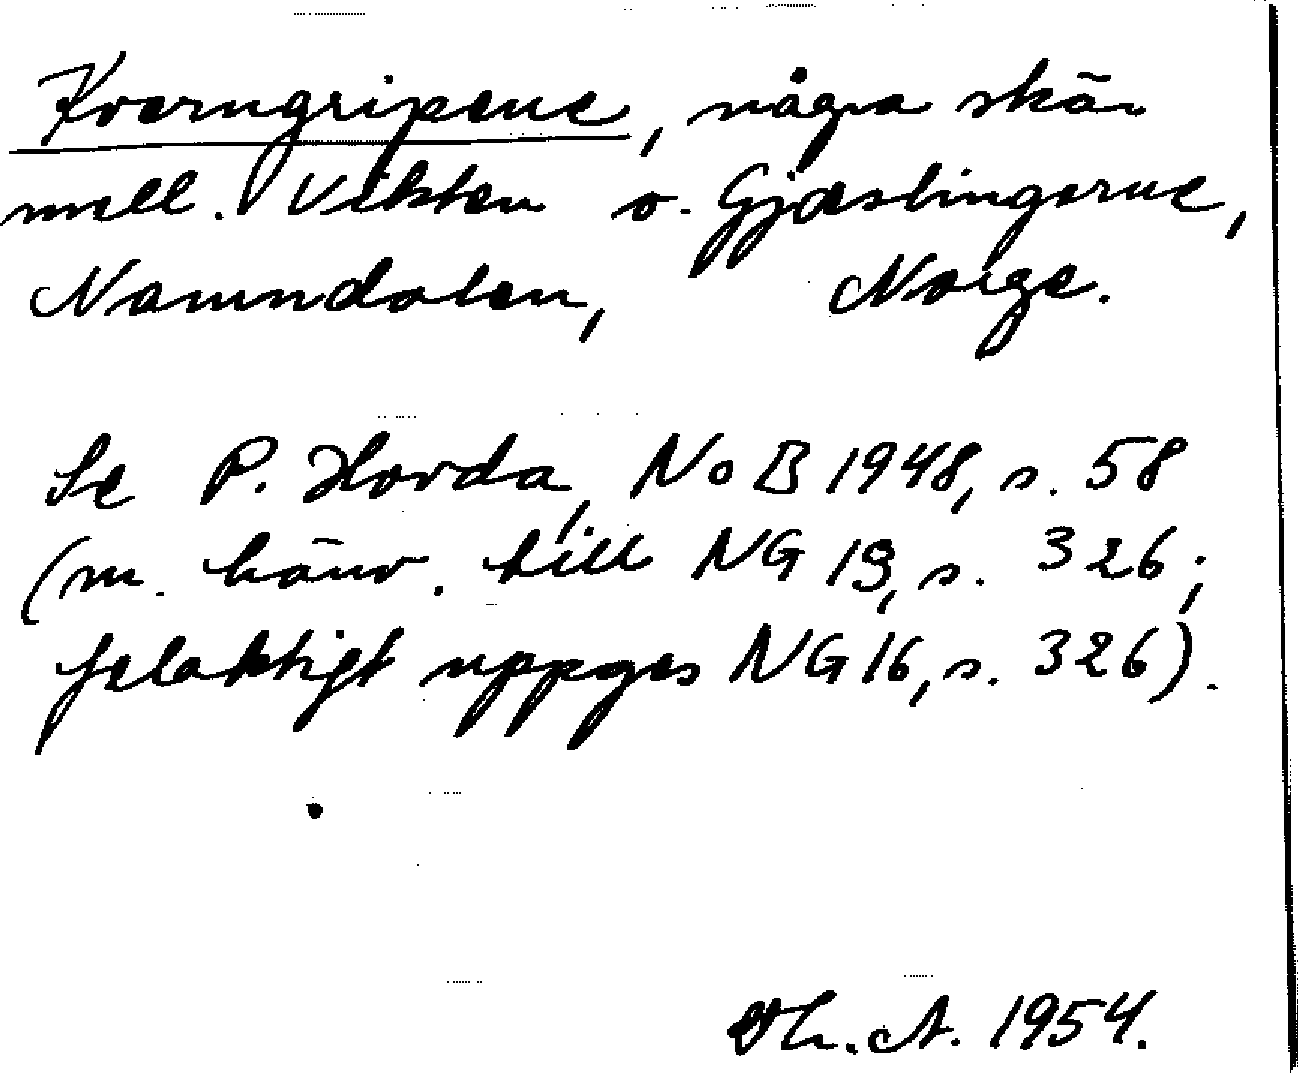 Kværngripene, några skär
mell. Vikten o. Gjæslingerne,
Namndalen, Norge.
Se P. Hovda, NoB 1948, s. 58
(m. hänv. till NG 19, s. 326;
felaktigt uppges NG 16, s. 326).
Th. A. 1954.